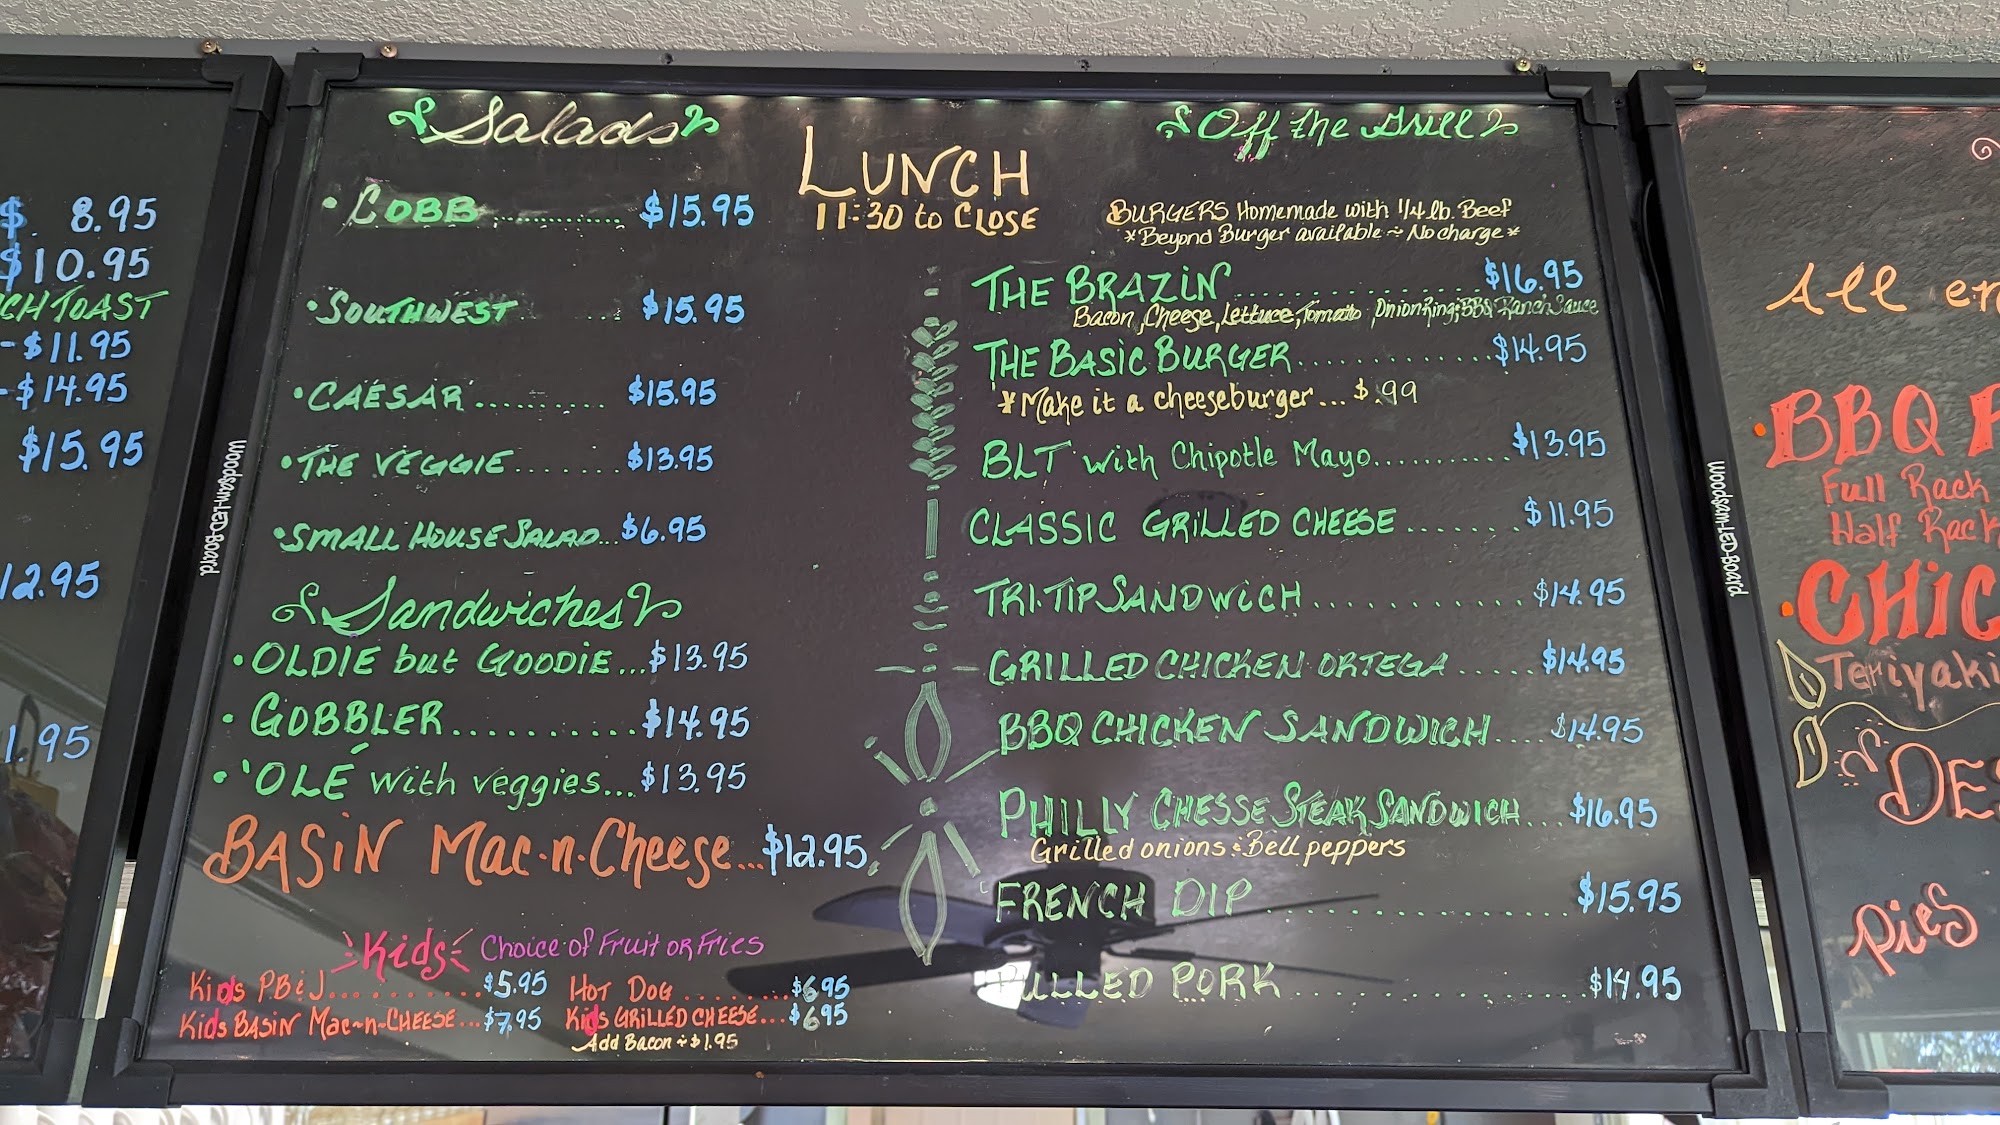 $ 8.95
$10.95
CH TOAST
-$11.95
-$14.95
$15.95
12.95
1.95
Woodsam-LED-Board
Salads
• COBB ............ $15.95
• SOUTHWEST ..... $15.95
• CAESAR .......... $15.95
• THE VEGGIE ....... $13.95
• SMALL HOUSE SALAD... $6.95
Sandwiches
• OLDIE but GOODIE... $13.95
• GOBBLER.......... $14.95
• 'OLÉ with veggies... $13.95
BASIN Mac-n-Cheese... $12.95
Kids Choice of Fruit or Fries
Kids PB&J.......... $5.95
Kids BASIN Mac-n-CHEESE... $7.95
HOT DOG ........ $6.95
Kids GRILLED CHEESE... $6.95
Add Bacon ~ $1.95
LUNCH
11:30 to CLOSE
Off the Grill
BURGERS Homemade with 1/4 lb. Beef
*Beyond Burger available ~ No charge*
THE BRAZIN .............. $16.95
Bacon, Cheese, Lettuce, Tomato Onion Ring & BBQ Ranch Sauce
THE BASIC BURGER............. $14.95
*Make it a cheeseburger... $.99
BLT with Chipotle Mayo........... $13.95
CLASSIC GRILLED CHEESE ....... $11.95
TRI-TIP SANDWICH........... $14.95
GRILLED CHICKEN ORTEGA ..... $14.95
BBQ CHICKEN SANDWICH.... $14.95
PHILLY CHESSE STEAK SANDWICH... $16.95
Grilled onions & Bell peppers
FRENCH DIP ................. $15.95
PULLED PORK ................. $14.95
Woodsam-LED-Board
All en
• BBQ
Full Rack
Half Rack
• CHIC
Teriyaki
DES
Pies